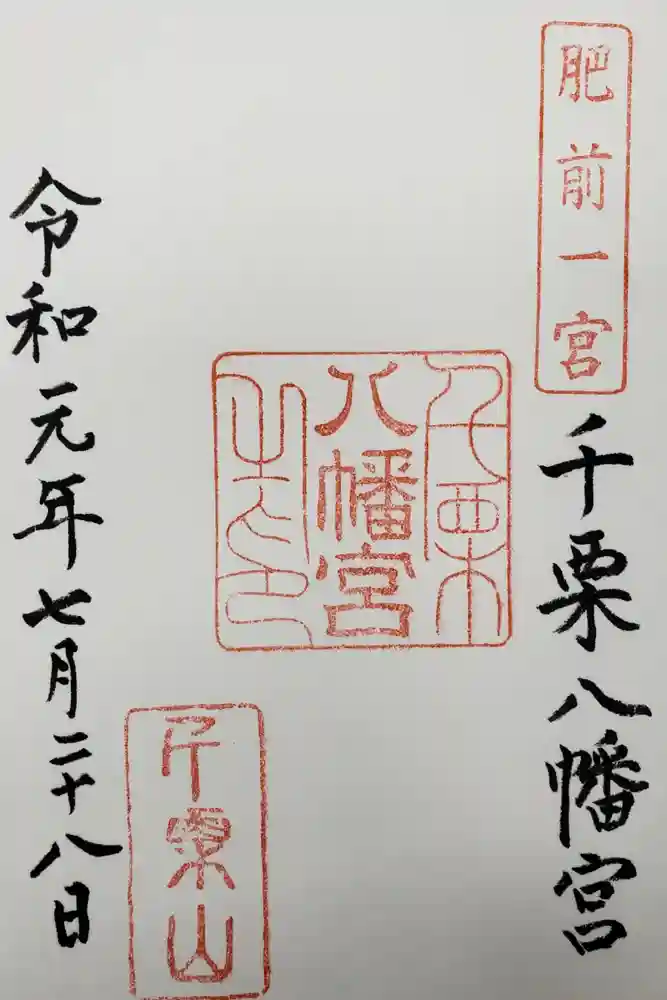 肥前一宮
千栗八幡宮
千栗
八幡宮
之印
千栗山
令和元年七月二十八日